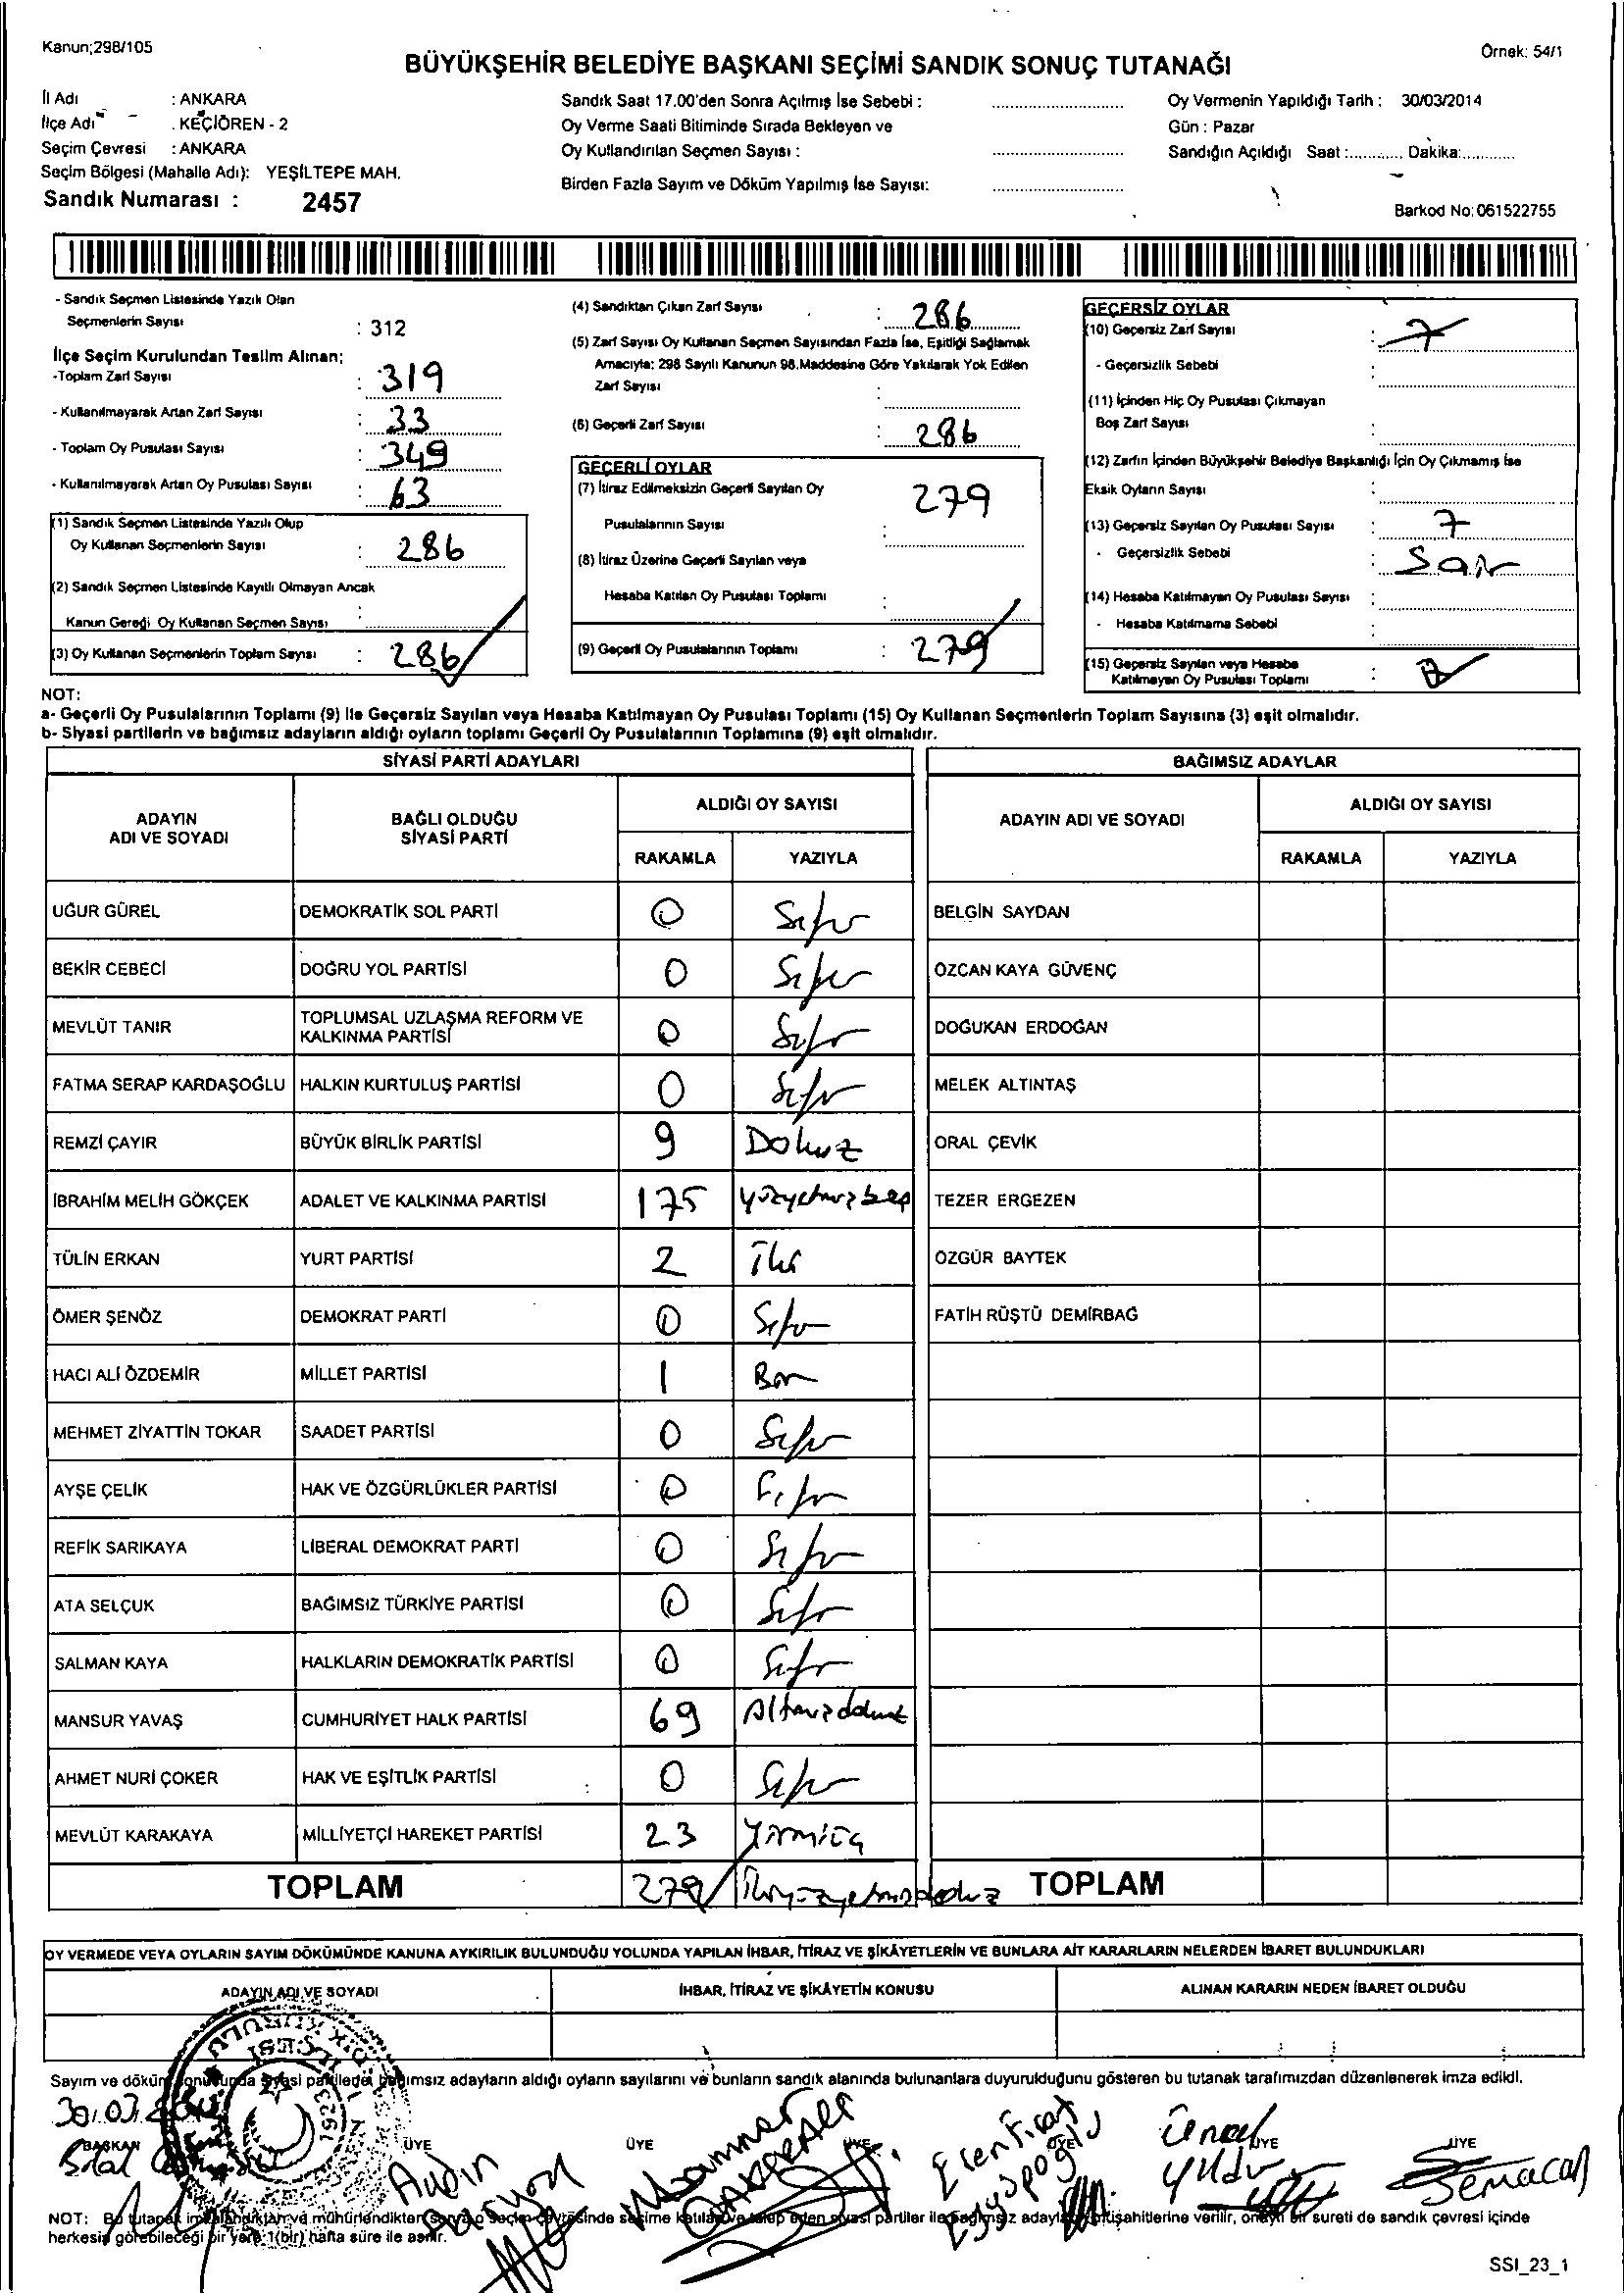 Kanun;298/105
Örnek: 54/1
BÜYÜKŞEHİR BELEDİYE BAŞKANI SEÇİMİ SANDIK SONUÇ TUTANAĞI
İl Adı : ANKARA
İlçe Adı : KEÇİÖREN - 2
Seçim Çevresi : ANKARA
Seçim Bölgesi (Mahalle Adı): YEŞİLTEPE MAH.
Sandık Numarası : 2457
Sandık Saat 17.00'den Sonra Açılmış İse Sebebi :
Oy Verme Saati Bitiminde Sırada Bekleyen ve
Oy Kullandırılan Seçmen Sayısı :
Birden Fazla Sayım ve Döküm Yapılmış İse Sayısı:
Oy Vermenin Yapıldığı Tarih : 30/03/2014
Gün : Pazar
Sandığın Açıldığı Saat :............ Dakika:............
Barkod No: 061522755
- Sandık Seçmen Listesinde Yazılı Olan
Seçmenlerin Sayısı : 312
İlçe Seçim Kurulundan Teslim Alınan;
-Toplam Zarf Sayısı : 319
- Kullanılmayarak Artan Zarf Sayısı : 33
- Toplam Oy Pusulası Sayısı : 349
- Kullanılmayarak Artan Oy Pusulası Sayısı : 63
(1) Sandık Seçmen Listesinde Yazılı Olup
Oy Kullanan Seçmenlerin Sayısı : 286
(2) Sandık Seçmen Listesinde Kayıtlı Olmayan Ancak
Kanun Gereği Oy Kullanan Seçmen Sayısı :
(3) Oy Kullanan Seçmenlerin Toplam Sayısı : 286
(4) Sandıktan Çıkan Zarf Sayısı : 286
(5) Zarf Sayısı Oy Kullanan Seçmen Sayısından Fazla İse, Eşitliği Sağlamak
Amacıyla: 298 Sayılı Kanunun 98.Maddesine Göre Yakılarak Yok Edilen
Zarf Sayısı :
(6) Geçerli Zarf Sayısı : 286
GEÇERLİ OYLAR
(7) İtiraz Edilmeksizin Geçerli Sayılan Oy
Pusulalarının Sayısı : 279
(8) İtiraz Üzerine Geçerli Sayılan veya
Hesaba Katılan Oy Pusulası Toplamı :
(9) Geçerli Oy Pusulalarının Toplamı : 279
GEÇERSİZ OYLAR
(10) Geçersiz Zarf Sayısı : 7
- Geçersizlik Sebebi :
(11) İçinden Hiç Oy Pusulası Çıkmayan
Boş Zarf Sayısı :
(12) Zarfın İçinden Büyükşehir Belediye Başkanlığı İçin Oy Çıkmamış İse
Eksik Oyların Sayısı :
(13) Geçersiz Sayılan Oy Pusulası Sayısı : 7
- Geçersizlik Sebebi :
(14) Hesaba Katılmayan Oy Pusulası Sayısı :
- Hesaba Katılmama Sebebi :
(15) Geçersiz Sayılan veya Hesaba
Katılmayan Oy Pusulası Toplamı : 7
NOT:
a- Geçerli Oy Pusulalarının Toplamı (9) ile Geçersiz Sayılan veya Hesaba Katılmayan Oy Pusulası Toplamı (15) Oy Kullanan Seçmenlerin Toplam Sayısına (3) eşit olmalıdır.
b- Siyasi partilerin ve bağımsız adayların aldığı oyların toplamı Geçerli Oy Pusulalarının Toplamına (9) eşit olmalıdır.
SİYASİ PARTİ ADAYLARI
BAĞIMSIZ ADAYLAR
ADAYIN ADI VE SOYADI
BAĞLI OLDUĞU SİYASİ PARTİ
ALDIĞI OY SAYISI
RAKAMLA YAZIYLA
ADAYIN ADI VE SOYADI
ALDIĞI OY SAYISI
RAKAMLA YAZIYLA
UĞUR GÜREL DEMOKRATİK SOL PARTİ 0 Sıfır BELGİN SAYDAN
BEKİR CEBECİ DOĞRU YOL PARTİSİ 0 Sıfır ÖZCAN KAYA GÜVENÇ
MEVLÜT TANIR TOPLUMSAL UZLAŞMA REFORM VE KALKINMA PARTİSİ 0 Sıfır DOĞUKAN ERDOĞAN
FATMA SERAP KARDAŞOĞLU HALKIN KURTULUŞ PARTİSİ 0 Sıfır MELEK ALTINTAŞ
REMZİ ÇAYIR BÜYÜK BİRLİK PARTİSİ 9 Dokuz ORAL ÇEVİK
İBRAHİM MELİH GÖKÇEK ADALET VE KALKINMA PARTİSİ 175 yüzyetmişbeş TEZER ERGEZEN
TÜLİN ERKAN YURT PARTİSİ 2 İki ÖZGÜR BAYTEK
ÖMER ŞENÖZ DEMOKRAT PARTİ 0 Sıfır FATİH RÜŞTÜ DEMİRBAĞ
HACI ALİ ÖZDEMİR MİLLET PARTİSİ 1 Bir
MEHMET ZİYATTİN TOKAR SAADET PARTİSİ 0 Sıfır
AYŞE ÇELİK HAK VE ÖZGÜRLÜKLER PARTİSİ 0 Sıfır
REFİK SARIKAYA LİBERAL DEMOKRAT PARTİ 0 Sıfır
ATA SELÇUK BAĞIMSIZ TÜRKİYE PARTİSİ 0 Sıfır
SALMAN KAYA HALKLARIN DEMOKRATİK PARTİSİ 0 Sıfır
MANSUR YAVAŞ CUMHURİYET HALK PARTİSİ 69 Altmışdokuz
AHMET NURİ ÇOKER HAK VE EŞİTLİK PARTİSİ 0 Sıfır
MEVLÜT KARAKAYA MİLLİYETÇİ HAREKET PARTİSİ 23 Yirmiüç
TOPLAM 279 İkiyüzyetmişdokuz TOPLAM
OY VERMEDE VEYA OYLARIN SAYIM DÖKÜMÜNDE KANUNA AYKIRILIK BULUNDUĞU YOLUNDA YAPILAN İHBAR, İTİRAZ VE ŞİKÂYETLERİN VE BUNLARA AİT KARARLARIN NELERDEN İBARET BULUNDUKLARI
ADAYIN ADI VE SOYADI İHBAR, İTİRAZ VE ŞİKÂYETİN KONUSU ALINAN KARARIN NEDEN İBARET OLDUĞU
Sayım ve döküm sonucunda siyasi partilerle, bağımsız adayların aldığı oyların sayılarını ve bunların sandık alanında bulunanlara duyurulduğunu gösteren bu tutanak tarafımızdan düzenlenerek imza edildi.
30.03.
BAŞKAN ÜYE ÜYE ÜYE ÜYE ÜYE ÜYE
Aydın
Muammer
Eren Fırat
Eyyüpoğlu
Semacan
NOT: Bu tutanak imzalandıktan ve mühürlendikten sonra o seçim çevresinde seçime katılan ve talep eden siyasi partiler ile bağımsız aday müşahitlerine verilir, onaylı bir sureti de sandık çevresi içinde
herkesin görebileceği bir yere 1(bir) hafta süre ile asılır.
SSI_23_1